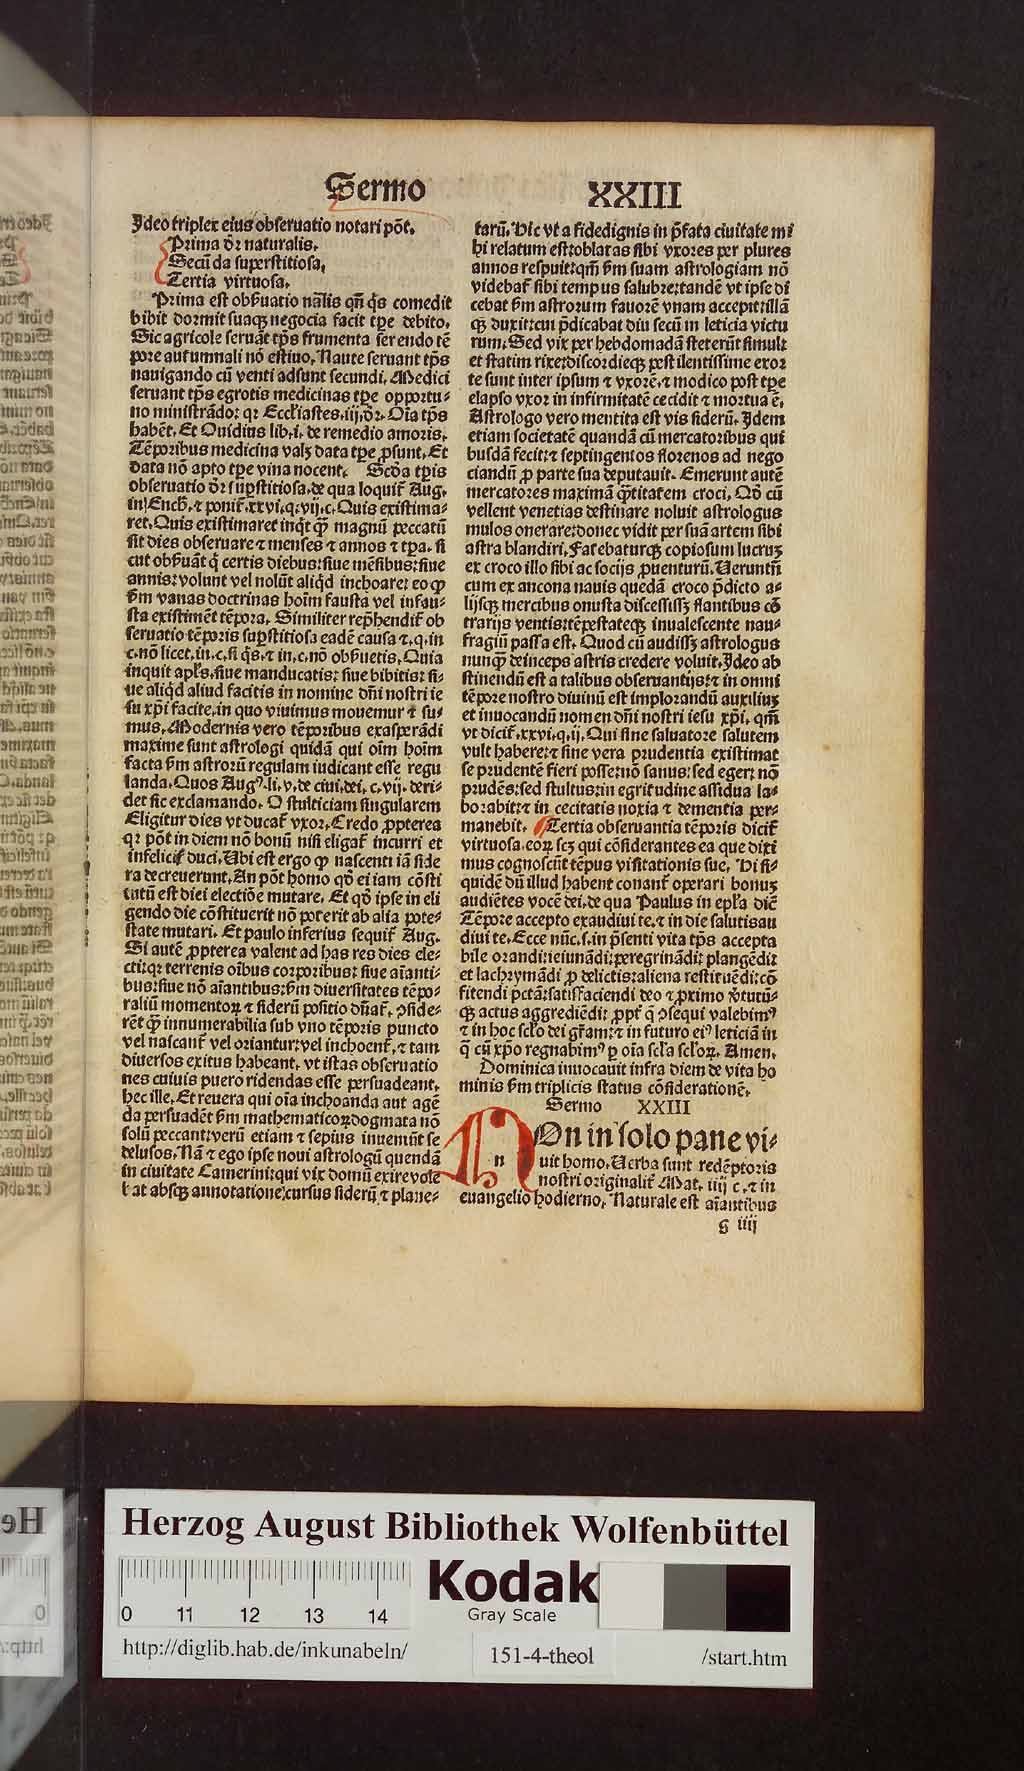 Sermo XXIII
Ideo triplex eius obseruatio notari põt.
Prima dr̃ naturalis.
Secũda superstitiosa.
Tertia virtuosa.
Prima est obẜuatio nãlis qñ q̃s comedit
bibit dormit suaqʒ negocia facit tp̃e debito.
Sic agricole seruãt tp̃s frumenta serendo tẽ
pore autumnali nõ estiuo. Naute seruant tp̃s
nauigando cũ venti adsunt secundi. Medici
seruant tp̃s egrotis medicinas tp̃e opportu⸗
no ministrãdo: qr Eccl'iastes .iij. dr̃. Oĩa tp̃s
habẽt. Et Ouidius lib. i. de remedio amoris.
Tẽporibus medicina valʒ data tp̃e ꝓsunt. Et
data nõ apto tp̃e vina nocent. Scd'a tp̃is
obseruatio dr̃ suꝑstitiosa. de qua loquit̃ Aug.
in Ench. ⁊ ponit̃ .xxvi. q. vij. c. Quis existima⸗
ret. Quis existimaret inq̃t ꝙ magnũ peccatũ
sit dies obseruare ⁊ menses ⁊ annos ⁊ tp̃a. si
cut obẜuãt q̃ certis diebus: siue mẽsibus: siue
annis: volunt vel nolũt aliq̃d inchoare: eo ꝙ
ẜm vanas doctrinas hoĩm fausta vel infau⸗
sta existimẽt tẽpora. Similiter rep̃hendit̃ ob
seruatio tẽporis suꝑstitiosa eadẽ causa ⁊. q. in
c. nõ licet. in. c. si q̃s. ⁊ in. c. nõ obẜuetis. Quia
inquit apl's. siue manducatis: siue bibitis: si⸗
ue aliq̃d aliud facitis in nomine dñi nostri ie
su xp̃i facite. in quo viuimus mouemur ⁊ su⸗
mus. Modernis vero tẽporibus exasperãdi
maxime sunt astrologi quidã qui oĩm hoĩm
facta ẜm astrorũ regulam iudicant esse regu
landa. Quos Augꝰ. li. v. de ciui. dei. c. vij. deri⸗
det sic exclamando. O stulticiam singularem
Eligitur dies vt ducat̃ vxor. Credo ꝓpterea
qr põt in diem nõ bonũ nisi eligat̃ incurri et
infelicit̃ duci. Ubi est ergo ꝙ nascenti iã side
ra decreuerunt. An põt homo qd' ei iam cõsti
tutũ est diei electiõe mutare. Et qd' ipse in eli
gendo die cõstituerit nõ poterit ab alia pote⸗
state mutari. Et paulo inferius sequit̃ Aug.
Si autẽ ꝓpterea valent ad has res dies ele⸗
cti: qr terrenis oĩbus corporibus: siue aĩanti⸗
bus: siue nõ aĩantibus: ẜm diuersitates tẽpo⸗
raliũ momentoꝝ ⁊ siderũ positio dñat̃. ꝯside⸗
rẽt ꝙ innumerabilia sub vno tẽporis puncto
vel nascant̃ vel oriantur: vel inchoent̃. ⁊ tam
diuersos exitus habeant. vt istas obseruatio
nes cuiuis puero ridendas esse persuadeant.
hec ille. Et reuera qui oĩa inchoanda aut agẽ
da persuadẽt ẜm mathematicoꝝ dogmata nõ
solũ peccant: verũ etiam ⁊ sepius inuemũt se
delusos. Nã ⁊ ego ipse noui astrologũ quendã
in ciuitate Camerini: qui vix domũ exire vole
bat absqʒ annotatione: cursus siderũ ⁊ plane⸗
tarũ. Hic vt a fidedignis in p̃fata ciuitate mi⸗
hi relatum est: oblatas sibi vxores per plures
annos respuit: qm̃ ẜm suam astrologiam nõ
videbat̃ sibi tempus salubre: tandẽ vt ipse di
cebat ẜm astrorum fauorẽ vnam accepit: illã
qʒ duxit: cui p̃dicabat diu secũ in leticia victu
rum. Sed vix per hebdomadã steterũt simul:
et statim rixe: discordieqʒ pestilentissime exor
te sunt inter ipsum ⁊ vxorẽ. ⁊ modico post tp̃e
elapso vxor in infirmitatẽ cecidit ⁊ mortua ẽ.
Astrologo vero mentita est vis siderũ. Idem
etiam societatẽ quandã cũ mercatoribus qui
busdã fecit: ⁊ septingentos florenos ad nego
ciandũ ꝓ parte sua deputauit. Emerunt autẽ
mercatores maximã q̃titatem croci. Qd' cũ
vellent venetias destinare noluit astrologus
mulos onerare: donec vidit per suã artem sibi
astra blandiri. Fatebaturqʒ copiosum lucruʒ
ex croco illo sibi ac socijs ꝓuenturũ. Ueruntñ
cum ex ancona nauis quedã croco p̃dicto a⸗
lijsqʒ mercibus onusta discessissʒ flantibus cõ
trarijs ventis: tẽpestateqʒ inualescente nau⸗
fragiũ passa est. Quod cũ audissʒ astrologus
nunqʒ̃ deinceps astris credere voluit. Ideo ab
stinendũ est a talibus obseruantijs: ⁊ in omni
tẽpore nostro diuinũ est implorandũ auxiliuʒ
et inuocandũ nomen dñi nostri iesu xp̃i. qm̃
vt dicit̃ .xxvi. q. ij. Qui sine saluatore salutem
vult habere: ⁊ sine vera prudentia existimat
se prudentẽ fieri posse: nõ sanus: sed eger: nõ
prudẽs: sed stultus: in egritudine assidua la⸗
borabit: ⁊ in cecitatis noxia ⁊ dementia per⸗
manebit. Tertia obseruantia tẽporis dicit̃
virtuosa. eoꝝ scʒ qui cõsiderantes ea que dixi
mus cognoscũt tẽpus visitationis sue. Hi si⸗
quidẽ dũ illud habent conant̃ operari bonuʒ
audiẽtes vocẽ dei. de qua Paulus in epl'a dic̃
Tẽpore accepto exaudiui te. ⁊ in die salutis au
diui te. Ecce nũc. s. in p̃senti vita tp̃s accepta
bile orandi: ieiunãdi: peregrinãdi: plangẽdi:
et lachrymãdi ꝓ delictis: aliena restituẽdi: cõ
fitendi pctã: satisfaciendi deo ⁊ ꝓximo v̓tutũ⸗
qʒ actus aggrediẽdi: ꝓpt̃ q̃ ꝯsequi valebimꝰ
⁊ in hoc scl'o dei gr̃am: ⁊ in futuro eiꝰ leticiã in
q̃ cũ xp̃o regnabimꝰ ꝑ oĩa scl'a scl'oꝝ. Amen.
Dominica inuocauit infra diem de vita ho
minis ẜm triplicis status cõsiderationẽ.
Sermo XXIII
NOn in solo pane vi⸗
n
uit homo. Uerba sunt redẽptoris
nostri originalit̃ Mat. iiij c. ⁊ in
euangelio hodierno. Naturale est aĩantibus
g iiij
Herzog August Bibliothek Wolfenbüttel
0 11 12 13 14
Kodak
Gray Scale
http://diglib.hab.de/inkunabeln/ 151-4-theol /start.htm